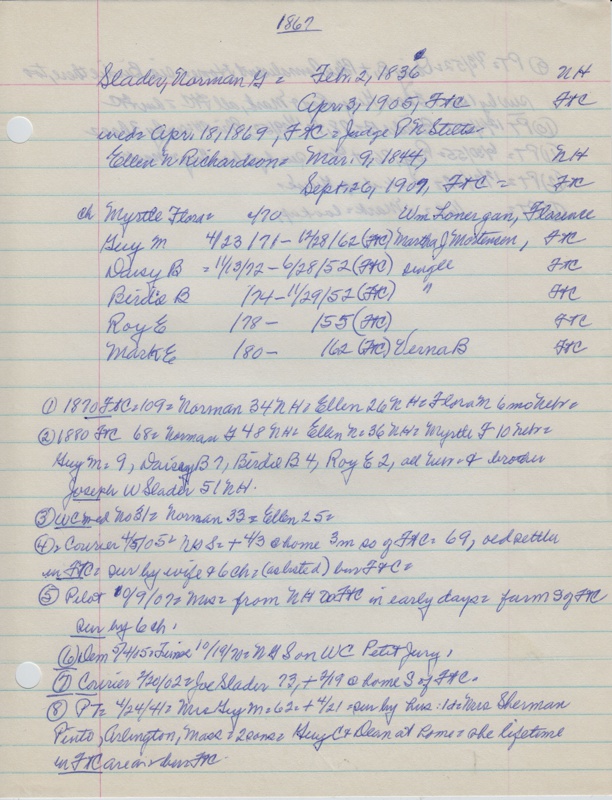 1867
Slader, Norman G = Feb. 2, 1836 NH
Apr. 3, 1905, FtC FtC
wed = Apr. 18, 1869, FtC = Judge P N Stilts
Ellen N Richardson = Mar. 9, 1844, NH
Sept. 26, 1907, FtC = FtC
ch Myrtle Flora = /70 Wm Lonergan, Florence
Guy M 4/23/71 - 12/28/62 (FtC) Martha J Mortensen, FtC
Daisy B = 11/13/72 - 6/28/52 (FtC) single FtC
Birdie B /74 - 11/29/52 (FtC) " FtC
Roy E /78 - /55 (FtC) FtC
Mark E /80 - /62 (FtC) Verna B FtC
① 1870 FtC = 109 = Norman 34 NH = Ellen 26 NH = Flora M 6 mo Nebr =
② 1880 FtC 68 = Norman G 48 NH = Ellen N = 36 NH = Myrtle F 10 Nebr =
Guy M = 9, Daisy B 7, Birdie B 4, Roy E 2, all Nebr & brother
Joseph W Slader 51 NH.
③ WC wed No 31 = Norman 33 = Ellen 25 =
④ Courier 4/5/05 = NGS = + 4/3 @ home 3 m so of FtC = 69, old settler
in FtC = sur by wife & 6 ch = (as listed) bur FtC =
⑤ Pilot 10/9/07 = Mrs = from NH to FtC in early days = farm S of FtC
sur by 6 ch.
⑥ Dem 5/4/05 = Times 10/19/70 = NGS on WC Petit Jury.
⑦ Courier 2/20/02 = Joe Slader 73, + 2/19 @ home S of FtC.
⑧ PT = 4/24/41 = Mrs Guy M = 62 = + 4/21 = sur by hus: 1d = Mrs Sherman
Pinto, Arlington, Mass = 2 sons = Guy C & Dean at home = she lifetime
in FtC area = bur FtC.